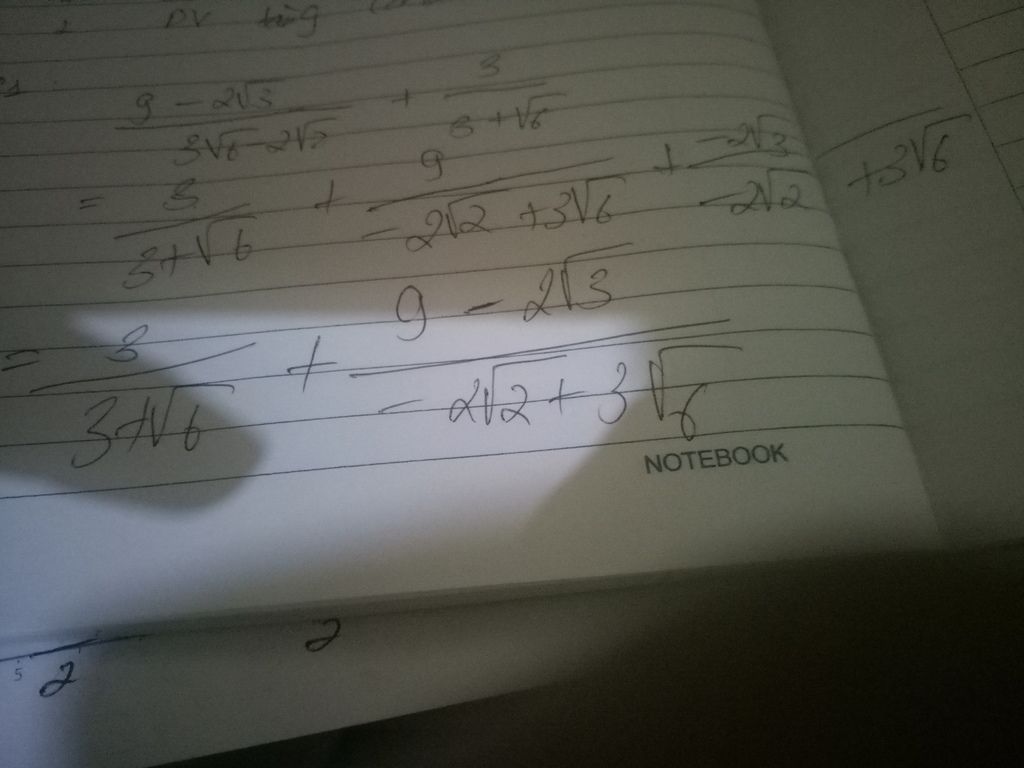 ĐV tăng
9 - 2√3 / 3√6 - 2√2 + 3 / 3 + √6
= 3 / 3+√6 + 9 / -2√2 + 3√6 + -2√3 / -2√2 + 3√6
= 3 / 3+√6 + 9 - 2√3 / -2√2 + 3√6
NOTEBOOK
2
5 2